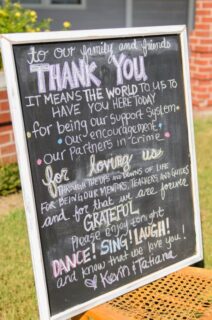 to our family and friends
THANK YOU
IT MEANS THE WORLD TO US TO
HAVE YOU HERE TODAY
for being our support system
our encouragement
our partners in crime
for loving us
THROUGH THE UPS AND DOWNS OF LIFE
FOR BEING OUR MENTORS, TEACHERS AND GUIDES
and for that we are forever
GRATEFUL.
Please enjoy tonight
DANCE! SING! LAUGH!
and know that we love you!
Kevin & Tatiana